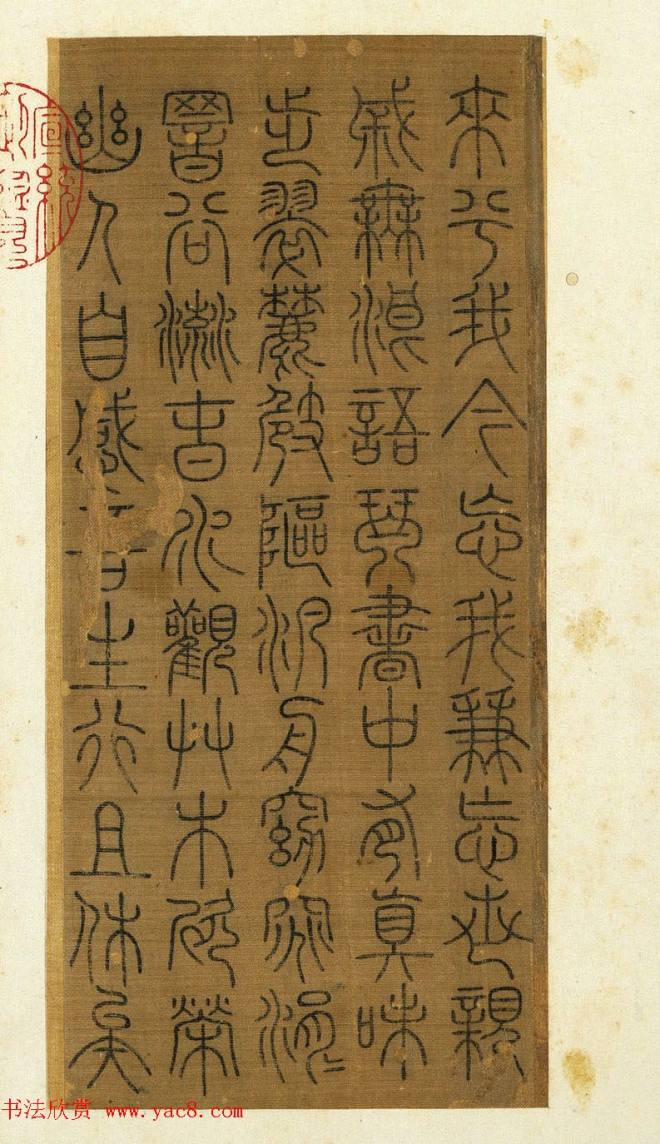 來兮我今忘我兼忘世親
戚無浪語琴書中有真味
步翠麓崎嶇汎舟窈窕涓〻
暗谷流春水觀艸木欣榮
幽人自感吾生行且休矣
书法欣赏 www.yac8.com